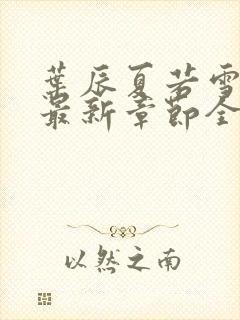 葉辰夏若雪
最新章節全
以然之南